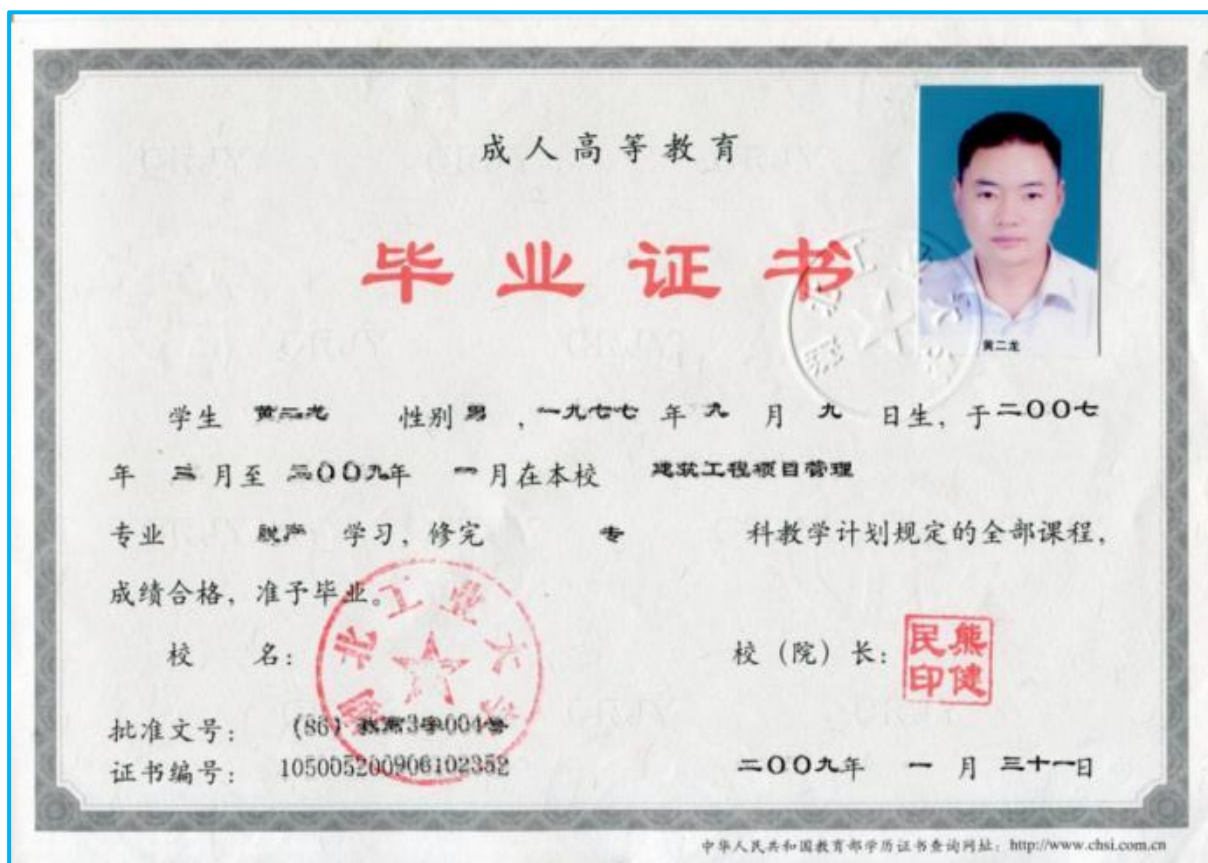 成人高等教育
毕业证书
黄二龙
学生 黄二龙 性别 男 ,一九七七 年 九 月 九 日生, 于二〇〇七
年 三 月至 二〇〇九年 一月在本校 建筑工程项目管理
专业 脱产 学习, 修完 专 科教学计划规定的全部课程,
成绩合格, 准予毕业。
校 名: 湖北工业大学
校(院)长: 熊健民印
批准文号: (86)教高3字004号
证书编号: 105005200906102352
二〇〇九年 一 月 三十一日
中华人民共和国教育部学历证书查询网址: http://www.chsi.com.cn